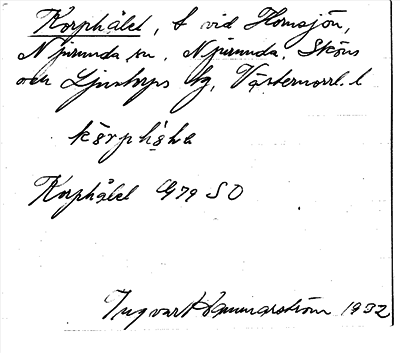 Korphålet, t vid Hornsjön,
Njurunda sn, Njurunda, Sköns
och Ljustorps tg, Västernorrl. l
Korphålet G79 SO
Ingvar Hammarström 1932